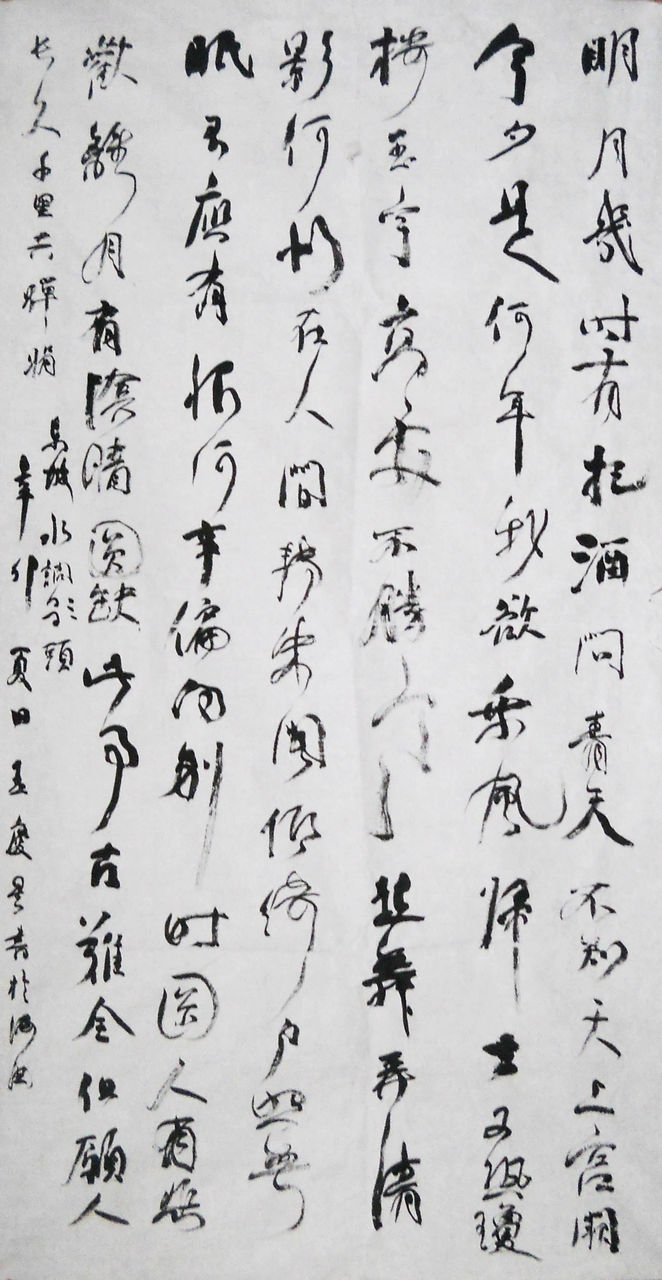 明月幾時有把酒問青天不知天上宮闕
今夕是何年我欲乘風歸去又恐瓊
樓玉宇高處不勝寒起舞弄清
影何似在人間轉朱閣低綺戶照無
眠不應有恨何事偏向別時圓人有悲
歡離月有陰晴圓缺此事古難全但願人
长久千里共嬋娟
東坡水調歌頭
辛卯夏日